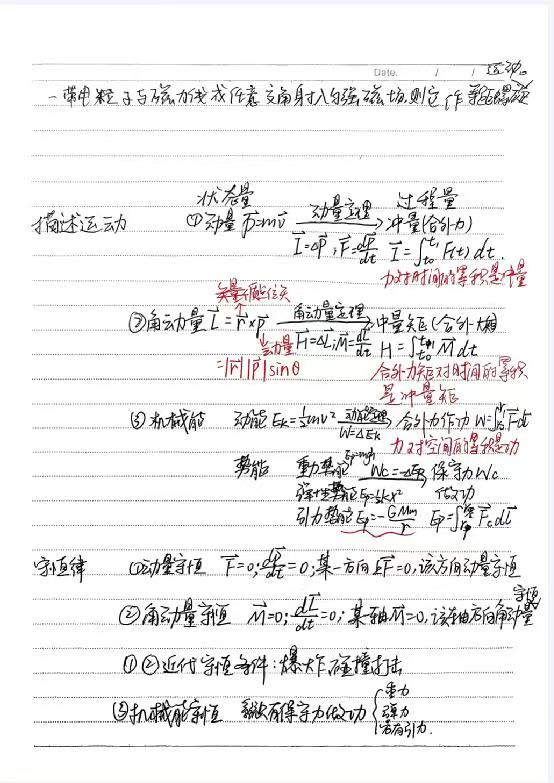 Date. / / 运动。
一带电粒子与磁力线成任意交角射入匀强磁场,则它作等距螺旋
状态量 过程量
描述运动 ①动量 p⃗=mv⃗ 动量定理 冲量(合外力)
I⃗=ΔP⃗, F⃗=dp⃗/dt I⃗=∫_{t0}^{t1} F(t) dt.
力对时间的累积是冲量
矢量
②角动量 L⃗=r⃗×p⃗ 角动量定理 冲量矩(合外力矩)
动量 H⃗=ΔL⃗; M⃗=dL⃗/dt H=∫_{t0}^{t1} M⃗dt
=|r⃗||p⃗|sinθ 合外力矩对时间的累积
是冲量矩
③机械能 动能 Ek=½mv² 动能定理 合外力作功 W=∫F⃗dr⃗
W=ΔEk 力对空间的累积是功
Ep=mgh
势能 重力势能 Wc=-ΔEp 保守力Wc
弹性势能 Ep=½kx² 做功
引力势能 Ep=-GMm/r Ep=∫F⃗c dr⃗
守恒律 ①动量守恒 F⃗=0; dp⃗/dt=0; 某一方向ΣF⃗=0,该方向动量守恒
②角动量守恒 M⃗=0; dL⃗/dt=0; 某轴M⃗=0,该轴方向角动量守恒
①②近代守恒条件:爆炸碰撞打击
③机械能守恒 只有保守力做功 { 重力
弹力
万有引力.